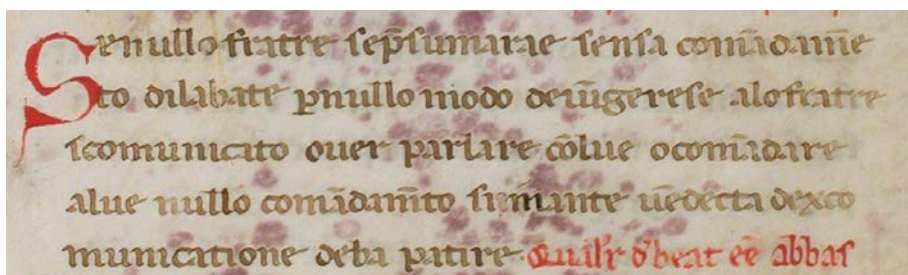 Se nullo fratre sep̄sumarae sensa com̄adam̄e
to dilabate p̱nullo modo deiūgerese alo fratre
scomunicato ouer parlare cōlue o com̄adare
alue nullo comādam̄to simiante uēdecta dexco
municatione deba patire Qualr̄ d̄beat eē abbas